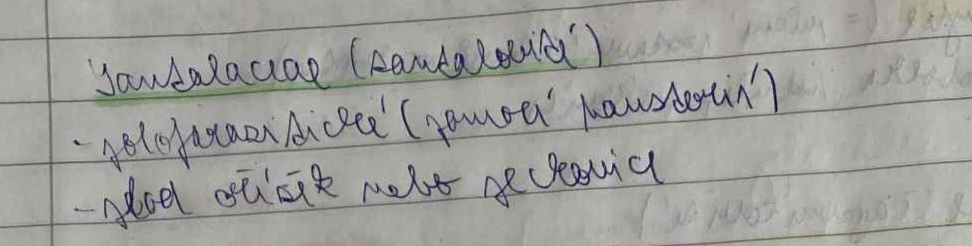 Santalaceae (santalovité)
- poloparazitické (pomocí haustorií)
- plod oříšek nebo peckovice